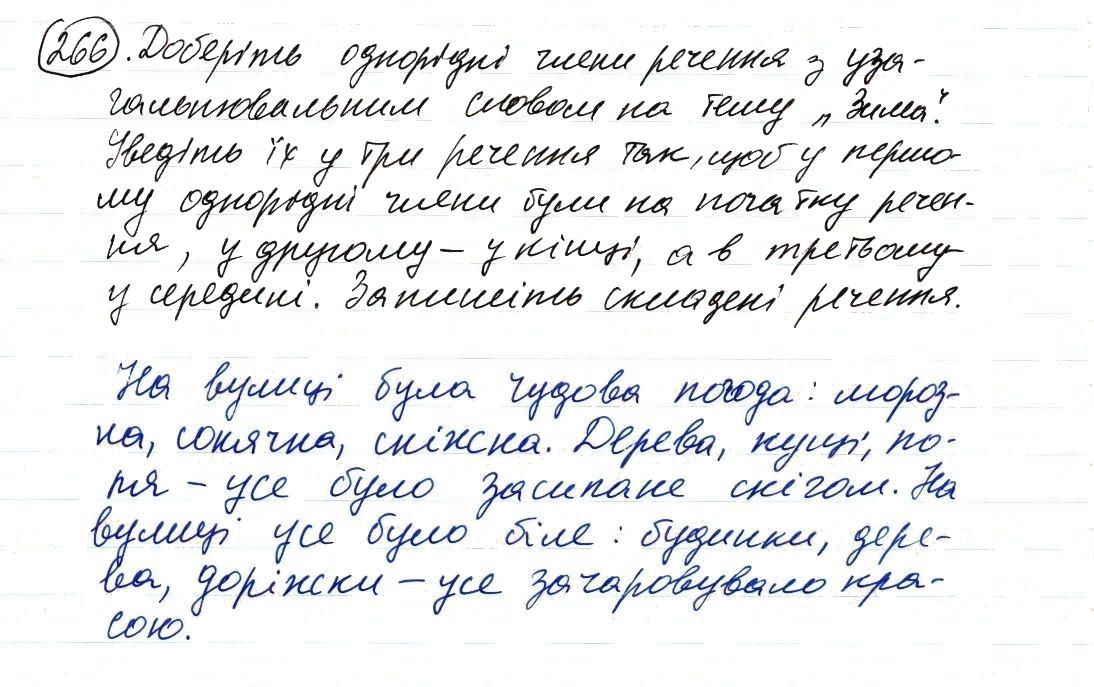 266. Доберіть однорідні члени речення з уза-
гальнювальним словом на тему „Зима".
Уведіть їх у три речення так, щоб у першо-
му однорідні члени були на початку речен-
ня, у другому – у кінці, а в третьому
у середині. Запишіть складені речення.
На вулиці була чудова погода: мороз-
на, сонячна, сніжна. Дерева, кущі, по-
ля – усе було засипане снігом. На
вулиці усе було біле: будинки, дере-
ва, доріжки – усе зачаровувало кра-
сою.